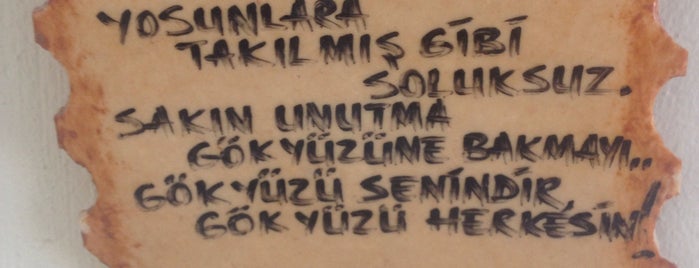 YOSUNLARA
TAKILMIŞ GİBİ
SOLUKSUZ.
SAKIN UNUTMA
GÖKYÜZÜNE BAKMAYI..
GÖKYÜZÜ SENİNDİR,
GÖKYÜZÜ HERKESİN!